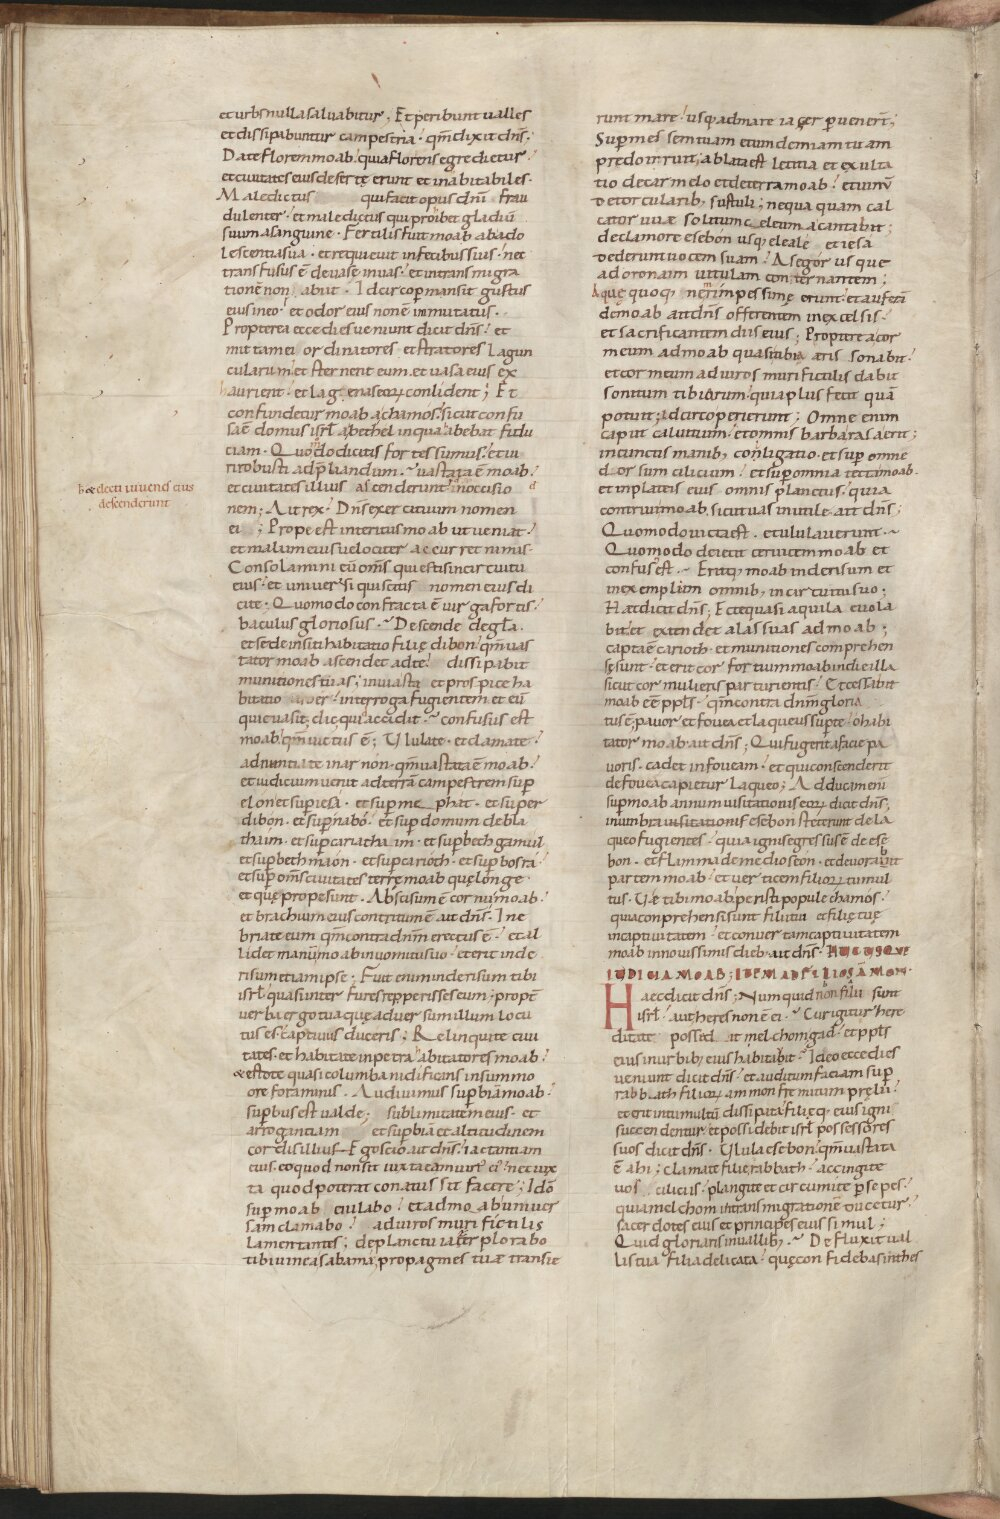 et urbs nulla saluabitur; Et peribunt ualles
et dissipabuntur campestria. qm̄ dixit dn̄s.
Date florem moab. quia florens egredietur.
et ciuitates eius desertę erunt et inabitabiles.
Maledictus qui facit opus dn̄i frau
dulenter. et maledictus qui proibet gladiū
suum a sanguine. Fertilis fuit moab ab ado
lescentia sua. et requieuit in fecibus suis. nec
transfusus ē de uase in uas. et in transmigra
tionē non abiit. Idcirco permansit gustus
eius in eo. et odor eius non ē inmutatus.
Propterea ecce dies ueniunt dicit dn̄s. et
mittam ei ordinatores. et stratores lagun
cularum. et sternent eum. et uasa eius ex
haurient. et lagenas eorꝝ conlident; Et
confundetur moab a chamos. sicut confu
sa ē domus isrl̄ a bethel in qua abebat fidu
ciam. Quomodo dicitis fortes sumus. et ui
ri robusti ad pliandum. uastata ē moab.
et ciuitates illius ascenderunt in occisio
hæc electi iuuenes eius
descenderunt
nem; Ait rex. Dn̄s exercituum nomen
ei; Prope est interitus moab ut ueniat.
et malum eius uelociter accurret nimis.
Consolamini eū om̄s qui estis in circuitu
eius. et uniuersi qui scitis nomen eius di
cite. Quomodo confracta ē uirga fortis.
baculus gloriosus. Descende de gl̄a.
et sede in siti habitatio filię dibon. qm̄ uas
tator moab ascendet ad te. dissipabit
munitiones tuas; in uia sta et prospice ha
bitatio aroer. interroga fugientem. et eū
qui euasit. dic quid accidit. confusus est
moab. qm̄ uictus ē; Ululate. et clamate.
adnuntiate in arnon. qm̄ uastata ē moab.
et iudicium uenit ad terrā campestrem sup
elon et sup iesa. et sup mephat. et super
dibon. et sup nabo. et sup domum debla
thaim. et sup cariathaim. et sup bethgamul
et sup bethmaon. et sup carioth. et sup bosra.
et sup om̄s ciuitates terrę moab quę longe
et quę prope sunt. Abscisum ē cornu moab.
et brachium eius contritum ē. ait dn̄s. Ine
briate eum. qm̄ contra dnm̄ erectus ē. et al
lidet manum moab in uomitu suo. et erit in de
risum etiam ipse. Fuit enim in derisum tibi
isrl̄. quasi inter fures repperisses eum; propt̄
uerba ergo tua que aduersum illum locu
tus es. captiuus duceris; Relinquite ciui
tates. et habitate in petra abitatores moab.
& estote quasi columba nidificans in summo
ore foraminis. Audiuimus supbiā moab.
supbus est ualde; sublimitatem eius. et
arrogantiam et supbiā et altitudinem
cordis illius. Ego scio ait dn̄s. iactantiam
eius. eo quod non sit iuxta eam uirt̄ ei. nec iux
ta quod poterat conatus sit facere; Ideo
sup moab eiulabo. et ad moab uniuer
sam clamabo. ad uiros muri fictilis
lamentantes; de planctu iazer plorabo
tibi uinea sabama, propagines tuæ transie
runt mare. usq; ad mare iazer peruenerunt;
Sup messem tuam et uindemiam tuam
predo irruit; ablata est letitia et exulta
tio de carmelo et de terra moab. et uinū
de torcularib; sustuli; nequaquam cal
cator uuæ solitum celeuma cantabit;
de clamore esebon usq; eleale et iesa
dederunt uocem suam. A segor usque
ad oronaim uitulam conternantem;
Aquę quoq; nemrim pessimę erunt. et auferā
de moab ait dn̄s offerentem in excelsis.
et sacrificantem diis eius; Propterea cor
meum ad moab quasi tibia æris sonabit.
et cor meum ad uiros muri fictilis dabit
sonitum tibiarum. quia plus fecit quā
potuit; idcirco perierunt; Omne enim
caput caluitium. et omnis barba rasa erit;
in cunctis manib; conligatio. et sup omne
dorsum cilicium. et sup omnia tecta moab.
et in plateis eius omnis planctus. quia
contriui moab, sicut uas inutile. ait dn̄s;
Quomodo uicta est. et ululauerunt.
Quomodo deiecit ceruicem moab et
confusus est. Eritq; moab in derisum et
in exemplum omnib; in circuitu suo;
Hæc dicit dn̄s; Ecce quasi aquila euola
bit. et extendet alas suas ad moab;
capta ē carioth. et munitiones comprehen
sę sunt. et erit cor fortium moab in die illa
sicut cor mulieris parturientis. Et cessabit
moab eē ppl̄s. qm̄ contra dnm̄ gloria
tus ē; pauor et fouea et laqueus sup te. o habi
tator moab. ait dn̄s; Qui fugerit a facie pa
uoris. cadet in foueam. et qui conscenderit
de fouea capietur laqueo; Adducam enī
sup moab annum uisitationis eorꝝ dicit dn̄s;
in umbra uisitationis esebon steterunt de la
queo fugientes. quia ignis egressus ē de ese
bon. et flamma de medio seon. et deuorabit
partem moab. et uerticem filiorꝝ tumul
tus. Ue tibi moab. peristi popule chamos.
quia conprehensi sunt filii tui et filię tuę
in captiuitatem. et conuertam captiuitatem
moab in nouissimis dieb; ait dn̄s. HUCUSQUE
IUDICIA MOAB; ITEM AD FILIOS AMMON.
Haec dicit dn̄s; Numquid non filii sunt
isrl̄. aut heres non ē ei. Cur igitur here
ditate possedit melchom gad. et ppl̄s
eius in urbib; eius habitabit. Ideo ecce dies
ueniunt dicit dn̄s. et auditum faciam sup
rabbath filiorꝝ ammon fremitum pręlii.
et erit in tumultū dissipata. filięq; eius igni
succendentur, et possidebit isrl̄ possessores
suos dicit dn̄s. Ulula esebon. qm̄ uastata
ē ahi; clamate filię rabbath. accingite
uos ciliciis. plangite et circumite p sepes.
quia melchom in transmigrationē ducetur.
sacerdotes eius et principes eius simul;
Quid gloriaris in uallib; Defluxit ual
lis tua. filia delicata. quę confidebas in thes